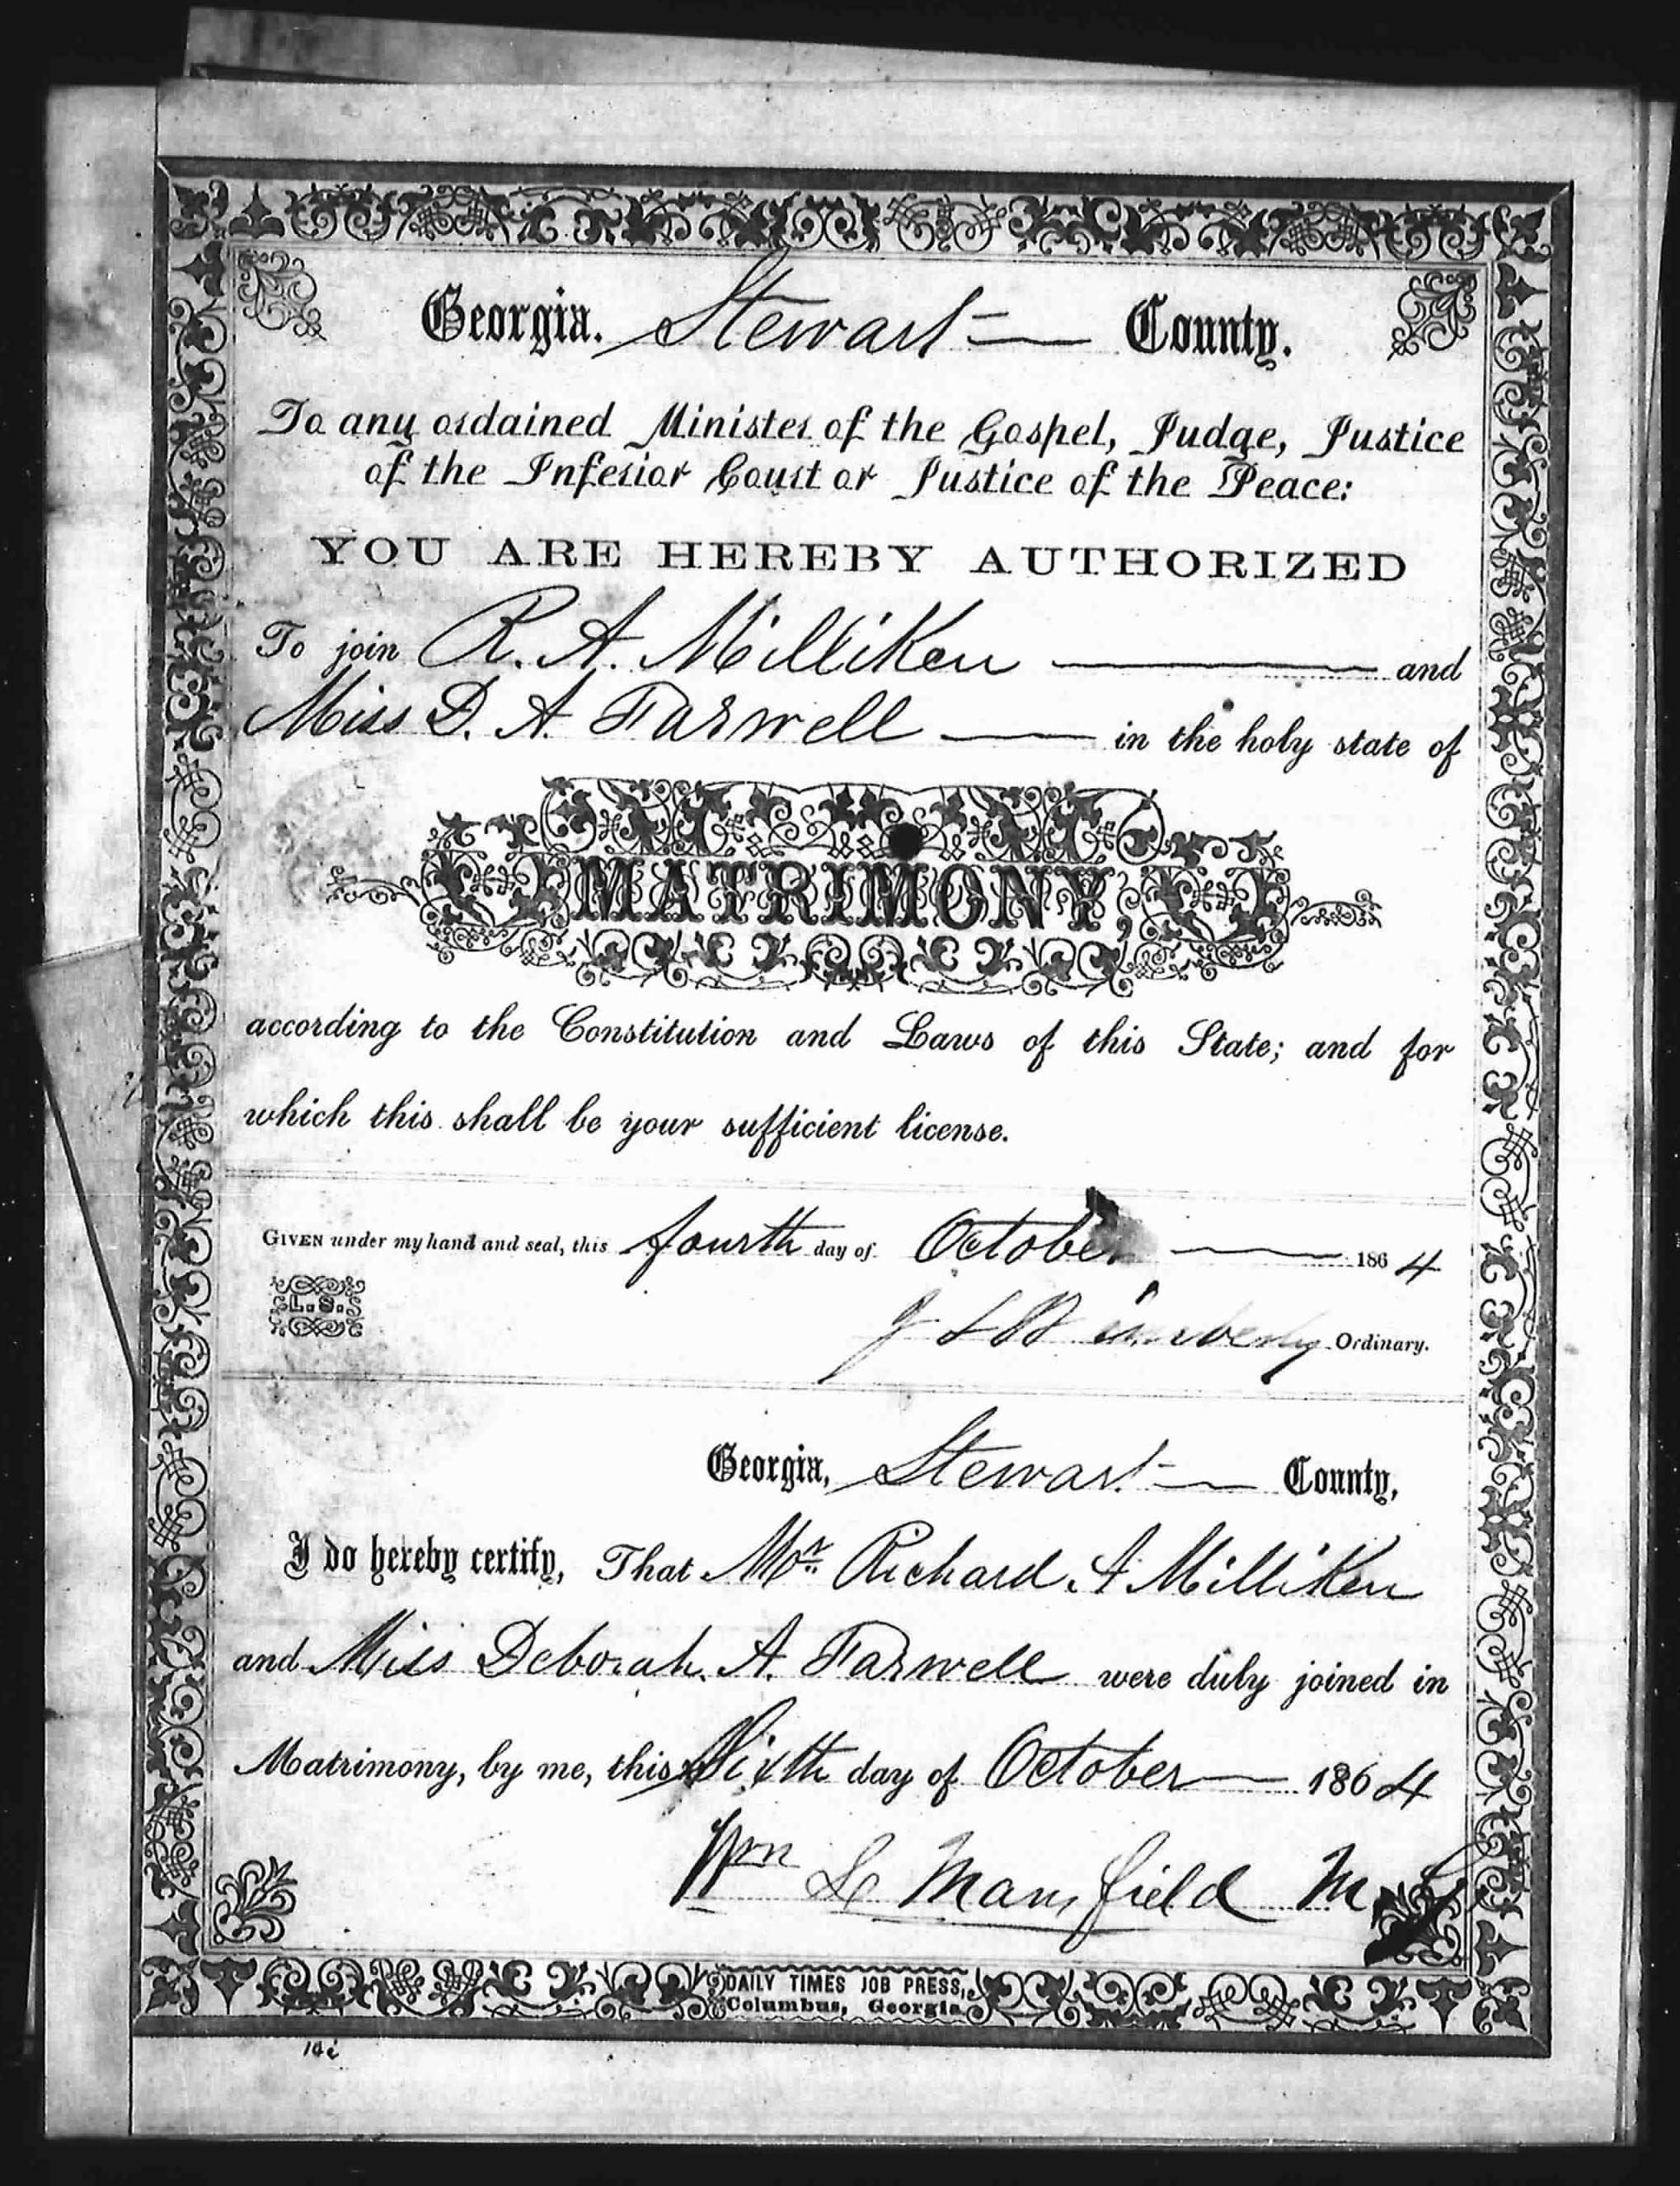 Georgia. Stewart County.
To any ordained Minister of the Gospel, Judge, Justice
of the Inferior Court or Justice of the Peace:
YOU ARE HEREBY AUTHORIZED
To join R. A. Milliken and
Miss D. A. Farwell in the holy state of
MATRIMONY,
according to the Constitution and Laws of this State; and for
which this shall be your sufficient license.
GIVEN under my hand and seal, this fourth day of October 1864
L.S.
J L Wimberly Ordinary.
Georgia, Stewart County,
I do hereby certify, That Mr. Richard A Milliken
and Miss Deborah. A. Farwell were duly joined in
Matrimony, by me, this Sixth day of October 1864
Wm Mansfield M. G
DAILY TIMES JOB PRESS,
Columbus, Georgia.